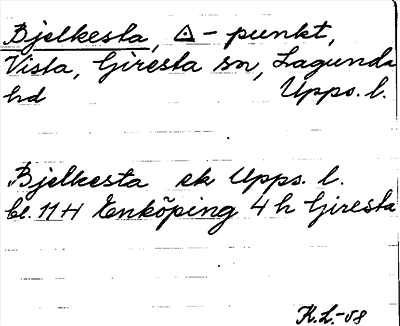 Bjelkesta, △-punkt,
Vista, Giresta sn, Lagunda
hd Upps. l.
Bjelkesta ek Upps. l.
bl. 11 H Enköping 4 h Giresta
K.L.-58